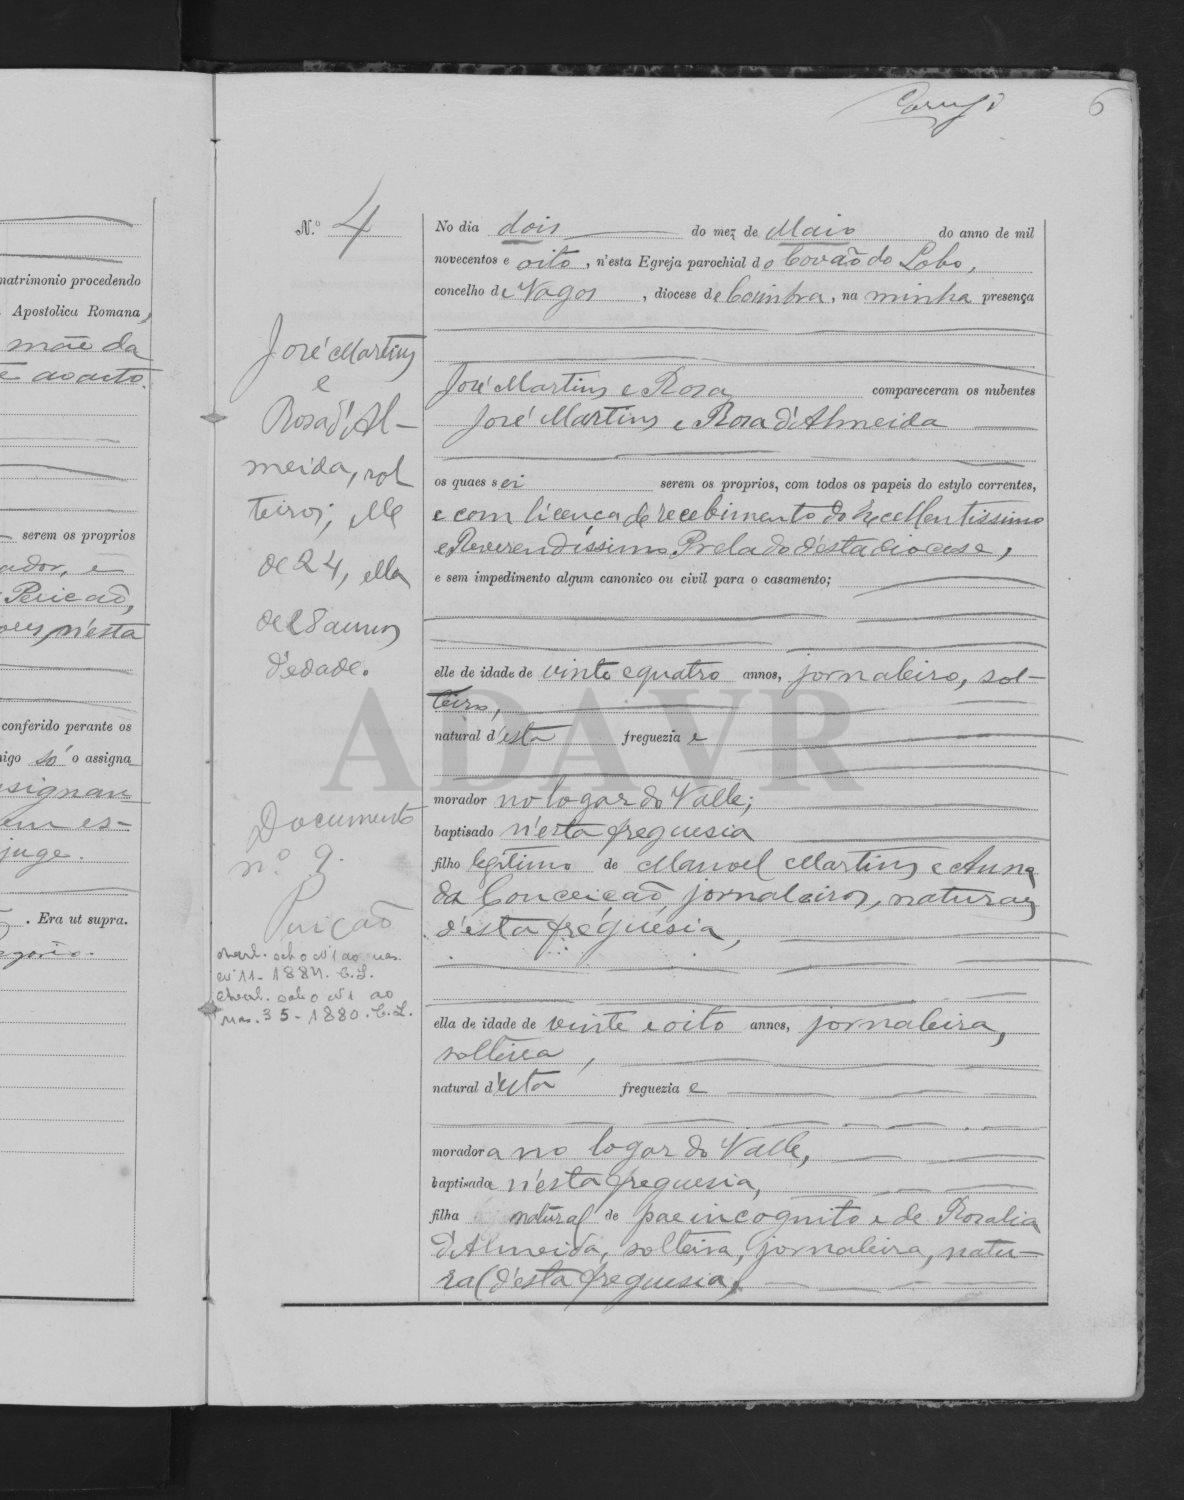 6
matrimonio procedendo
Apostolica Romana,
mãe da
ao acto.
serem os proprios
ador, e
n'esta
conferido perante os
migo só o assigna
assignam
em es-
juge.
. Era ut supra.
N.º 4
José Martins
e
Rosa d'Al-
meida, sol
teiros; elle
de 24, ella
de 28 annos
d'edade.
Documento
n.º 9.
No dia dois do mez de Maio do anno de mil
novecentos e oito, n'esta Egreja parochial do Covão do Lobo,
concelho de Vagos, diocese de Coimbra, na minha presença
José Martins e Rosa compareceram os nubentes
José Martins e Rosa d'Almeida
os quaes sei serem os proprios, com todos os papeis do estylo correntes,
e com licença de recebimento do Excellentissimo
e Reverendissimo Prelado d'esta diocese,
e sem impedimento algum canonico ou civil para o casamento;
elle de idade de vinte e quatro annos, jornaleiro, sol-
teiro,
natural d'esta freguezia e
morador no logar do Valle;
baptisado n'esta freguesia
filho legitimo de Manoel Martins e Anna
da Conceição, jornaleiros, naturaes
d'esta freguesia,
ella de idade de vinte e oito annos, jornaleira,
solteira,
natural d'esta freguezia e
moradora no logar do Valle,
baptisada n'esta freguesia,
filha natural de pae incognito e de Rosalia
d'Almeida, solteira, jornaleira, natu-
ral d'esta freguesia,
ADAVR